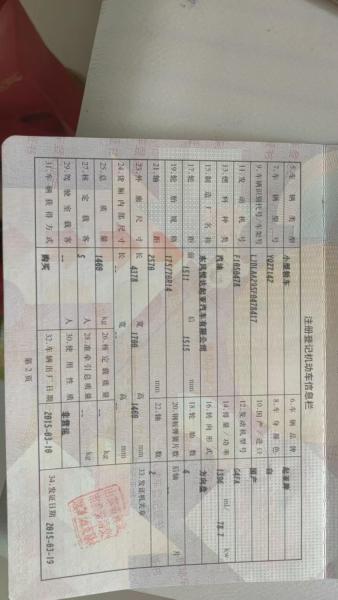 注册登记机动车信息栏
5.车辆类型 小型轿车 6.车辆品牌 起亚牌
7.车辆型号 YQZ7142 8.车身颜色 白
9.车辆识别代号/车架号 10.国产/进口 国产
11.发动机号 12.发动机型号 G4FA
13.燃料种类 汽油 14.排量/功率 1396 ml/ 78.7 kw
15.制造厂名称 东风悦达起亚汽车有限公司 16.转向形式 方向盘
17.轮距 前 1511 后 1515 mm 18.轮胎数 4
19.轮胎规格 175/70R14 20.钢板弹簧片数 后轴 -- 片
21.轴距 2570 mm 22.轴数 2
23.外廓尺寸 长 4370 宽 1700 高 1460 mm 33.发证机关章
24.货厢内部尺寸 长 -- 宽 -- 高 -- mm
25.总质量 1480 kg 26.核定载质量 -- kg
27.核定载客 5 人 28.准牵引总质量 -- kg
29.驾驶室载客 -- 人 30.使用性质 非营运
31.车辆获得方式 购买 32.车辆出厂日期 2015-03-10 34.发证日期 2015-03-19
第2页